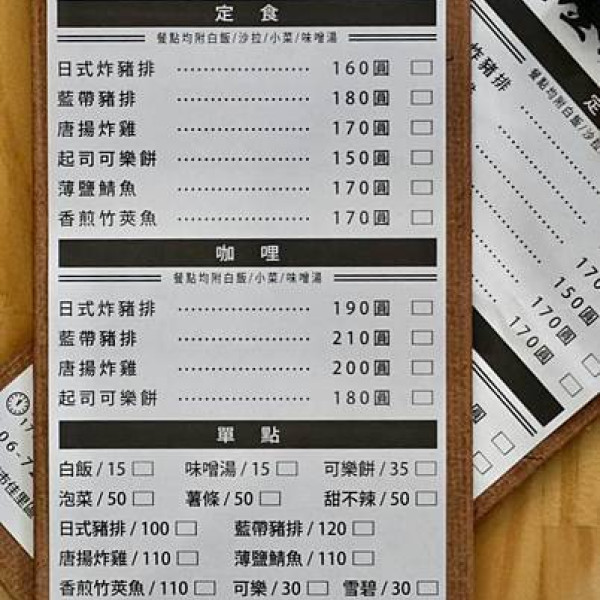 定 食
餐點均附白飯/沙拉/小菜/味噌湯
日式炸豬排 ⋯⋯⋯⋯⋯⋯ 160圓 □
藍帶豬排 ⋯⋯⋯⋯⋯⋯ 180圓 □
唐揚炸雞 ⋯⋯⋯⋯⋯⋯ 170圓 □
起司可樂餅 ⋯⋯⋯⋯⋯⋯ 150圓 □
薄鹽鯖魚 ⋯⋯⋯⋯⋯⋯ 170圓 □
香煎竹莢魚 ⋯⋯⋯⋯⋯⋯ 170圓 □
咖 哩
餐點均附白飯/小菜/味噌湯
日式炸豬排 ⋯⋯⋯⋯⋯⋯ 190圓 □
藍帶豬排 ⋯⋯⋯⋯⋯⋯ 210圓 □
唐揚炸雞 ⋯⋯⋯⋯⋯⋯ 200圓 □
起司可樂餅 ⋯⋯⋯⋯⋯⋯ 180圓 □
單 點
白飯/15 □ 味噌湯/15 □ 可樂餅/35 □
泡菜/50 □ 薯條/50 □ 甜不辣/50 □
日式豬排/100 □ 藍帶豬排/120 □
唐揚炸雞/110 □ 薄鹽鯖魚/110 □
香煎竹莢魚/110 □ 可樂/30 □ 雪碧/30 □
定
餐點均附白飯/沙拉
炸豬排
170
150圓 □
170圓 □
170圓 □
圓 □
市佳里區